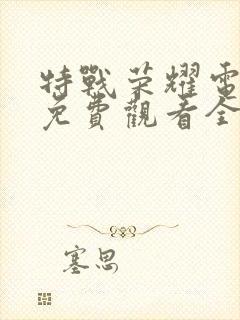 特戰荣耀電
免費觀看全
塞思